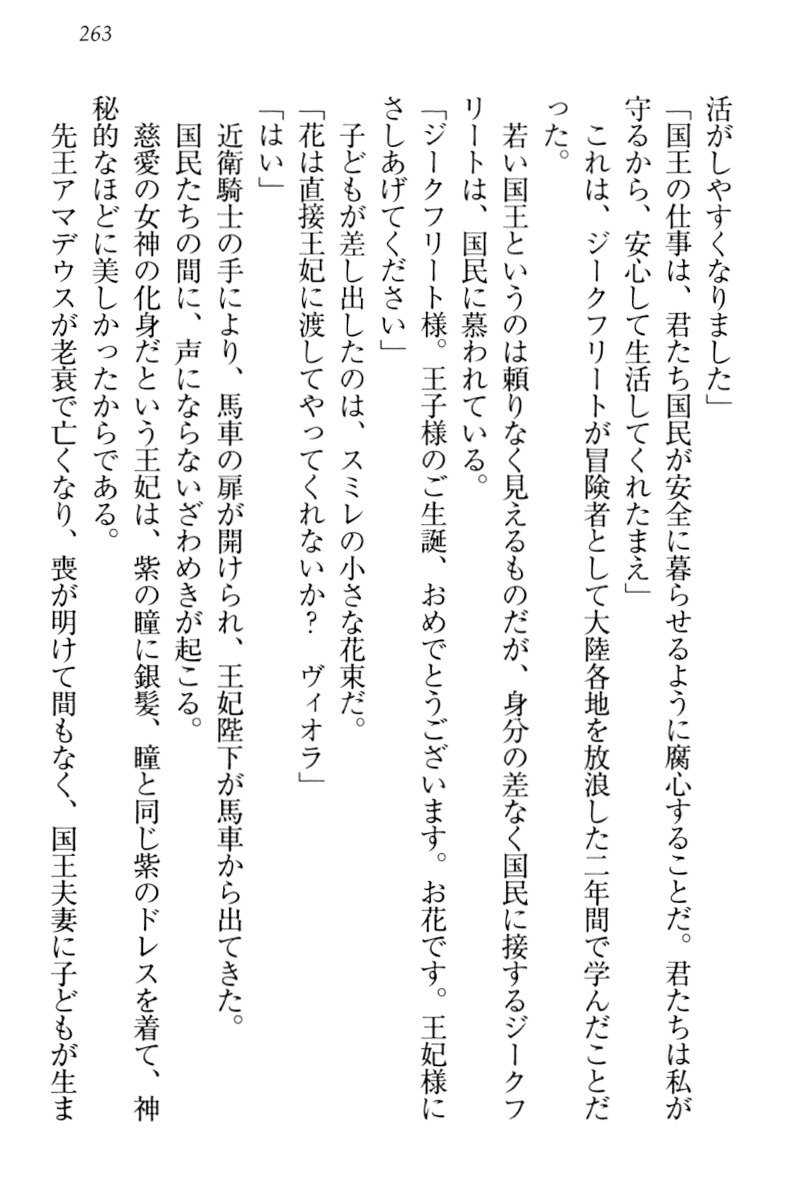 263
活がしやすくなりました」
「国王の仕事は、君たち国民が安全に暮らせるように腐心することだ。君たちは私が
守るから、安心して生活してくれたまえ」
これは、ジークフリートが冒険者として大陸各地を放浪した二年間で学んだことだ
った。
若い国王というのは頼りなく見えるものだが、身分の差なく国民に接するジークフ
リートは、国民に慕われている。
「ジークフリート様。王子様のご生誕、おめでとうございます。お花です。王妃様に
さしあげてください」
子どもが差し出したのは、スミレの小さな花束だ。
「花は直接王妃に渡してやってくれないか？　ヴィオラ」
「はい」
近衛騎士の手により、馬車の扉が開けられ、王妃陛下が馬車から出てきた。
国民たちの間に、声にならないざわめきが起こる。
慈愛の女神の化身だという王妃は、紫の瞳に銀髪、瞳と同じ紫のドレスを着て、神
秘的なほどに美しかったからである。
先王アマデウスが老衰で亡くなり、喪が明けて間もなく、国王夫妻に子どもが生ま